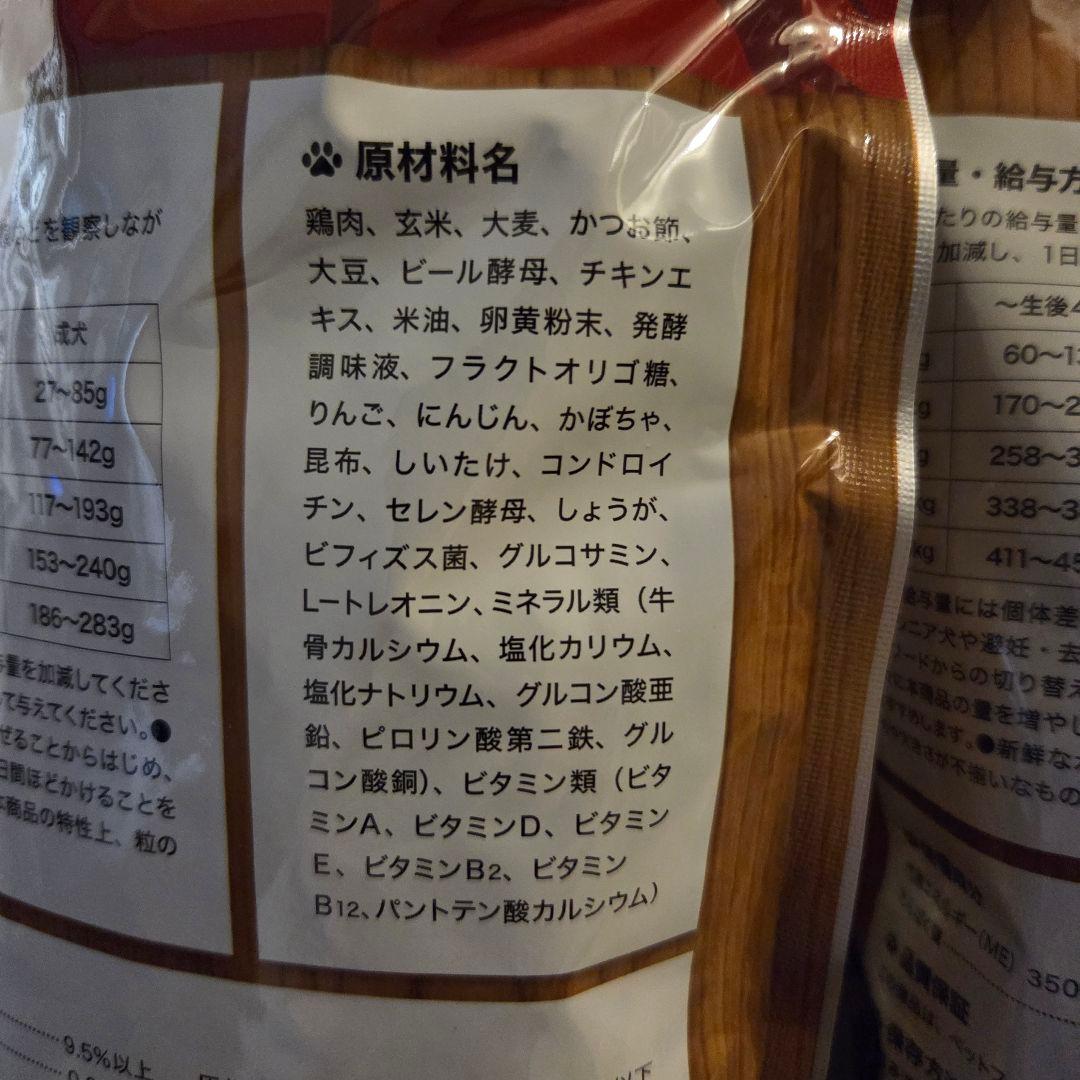 原材料名
鶏肉、玄米、大麦、かつお節、
大豆、ビール酵母、チキンエ
キス、米油、卵黄粉末、発酵
調味液、フラクトオリゴ糖、
りんご、にんじん、かぼちゃ、
昆布、しいたけ、コンドロイ
チン、セレン酵母、しょうが、
ビフィズス菌、グルコサミン、
L-トレオニン、ミネラル類（牛
骨カルシウム、塩化カリウム、
塩化ナトリウム、グルコン酸亜
鉛、ピロリン酸第二鉄、グル
コン酸銅）、ビタミン類（ビタ
ミンA、ビタミンD、ビタミン
E、ビタミンB2、ビタミン
B12、パントテン酸カルシウム）
を観察しなが
成犬
27〜85g
77〜142g
117〜193g
153〜240g
186〜283g
量を加減してくださ
て与えてください。●
せることからはじめ、
日間ほどかけることを
商品の特性上、粒の
9.5%以上
以下
量・給与方
たりの給与量
加減し、1日
〜生後4
60〜1
170〜2
258〜3
338〜3
kg 411〜45
給与量には個体差
ニア犬や避妊・去
フードからの切り替え
に本商品の量を増やし
すすめします。●新鮮な水
や大きさが不揃いなもの
ギー(ME) 350
品質保証
保存方